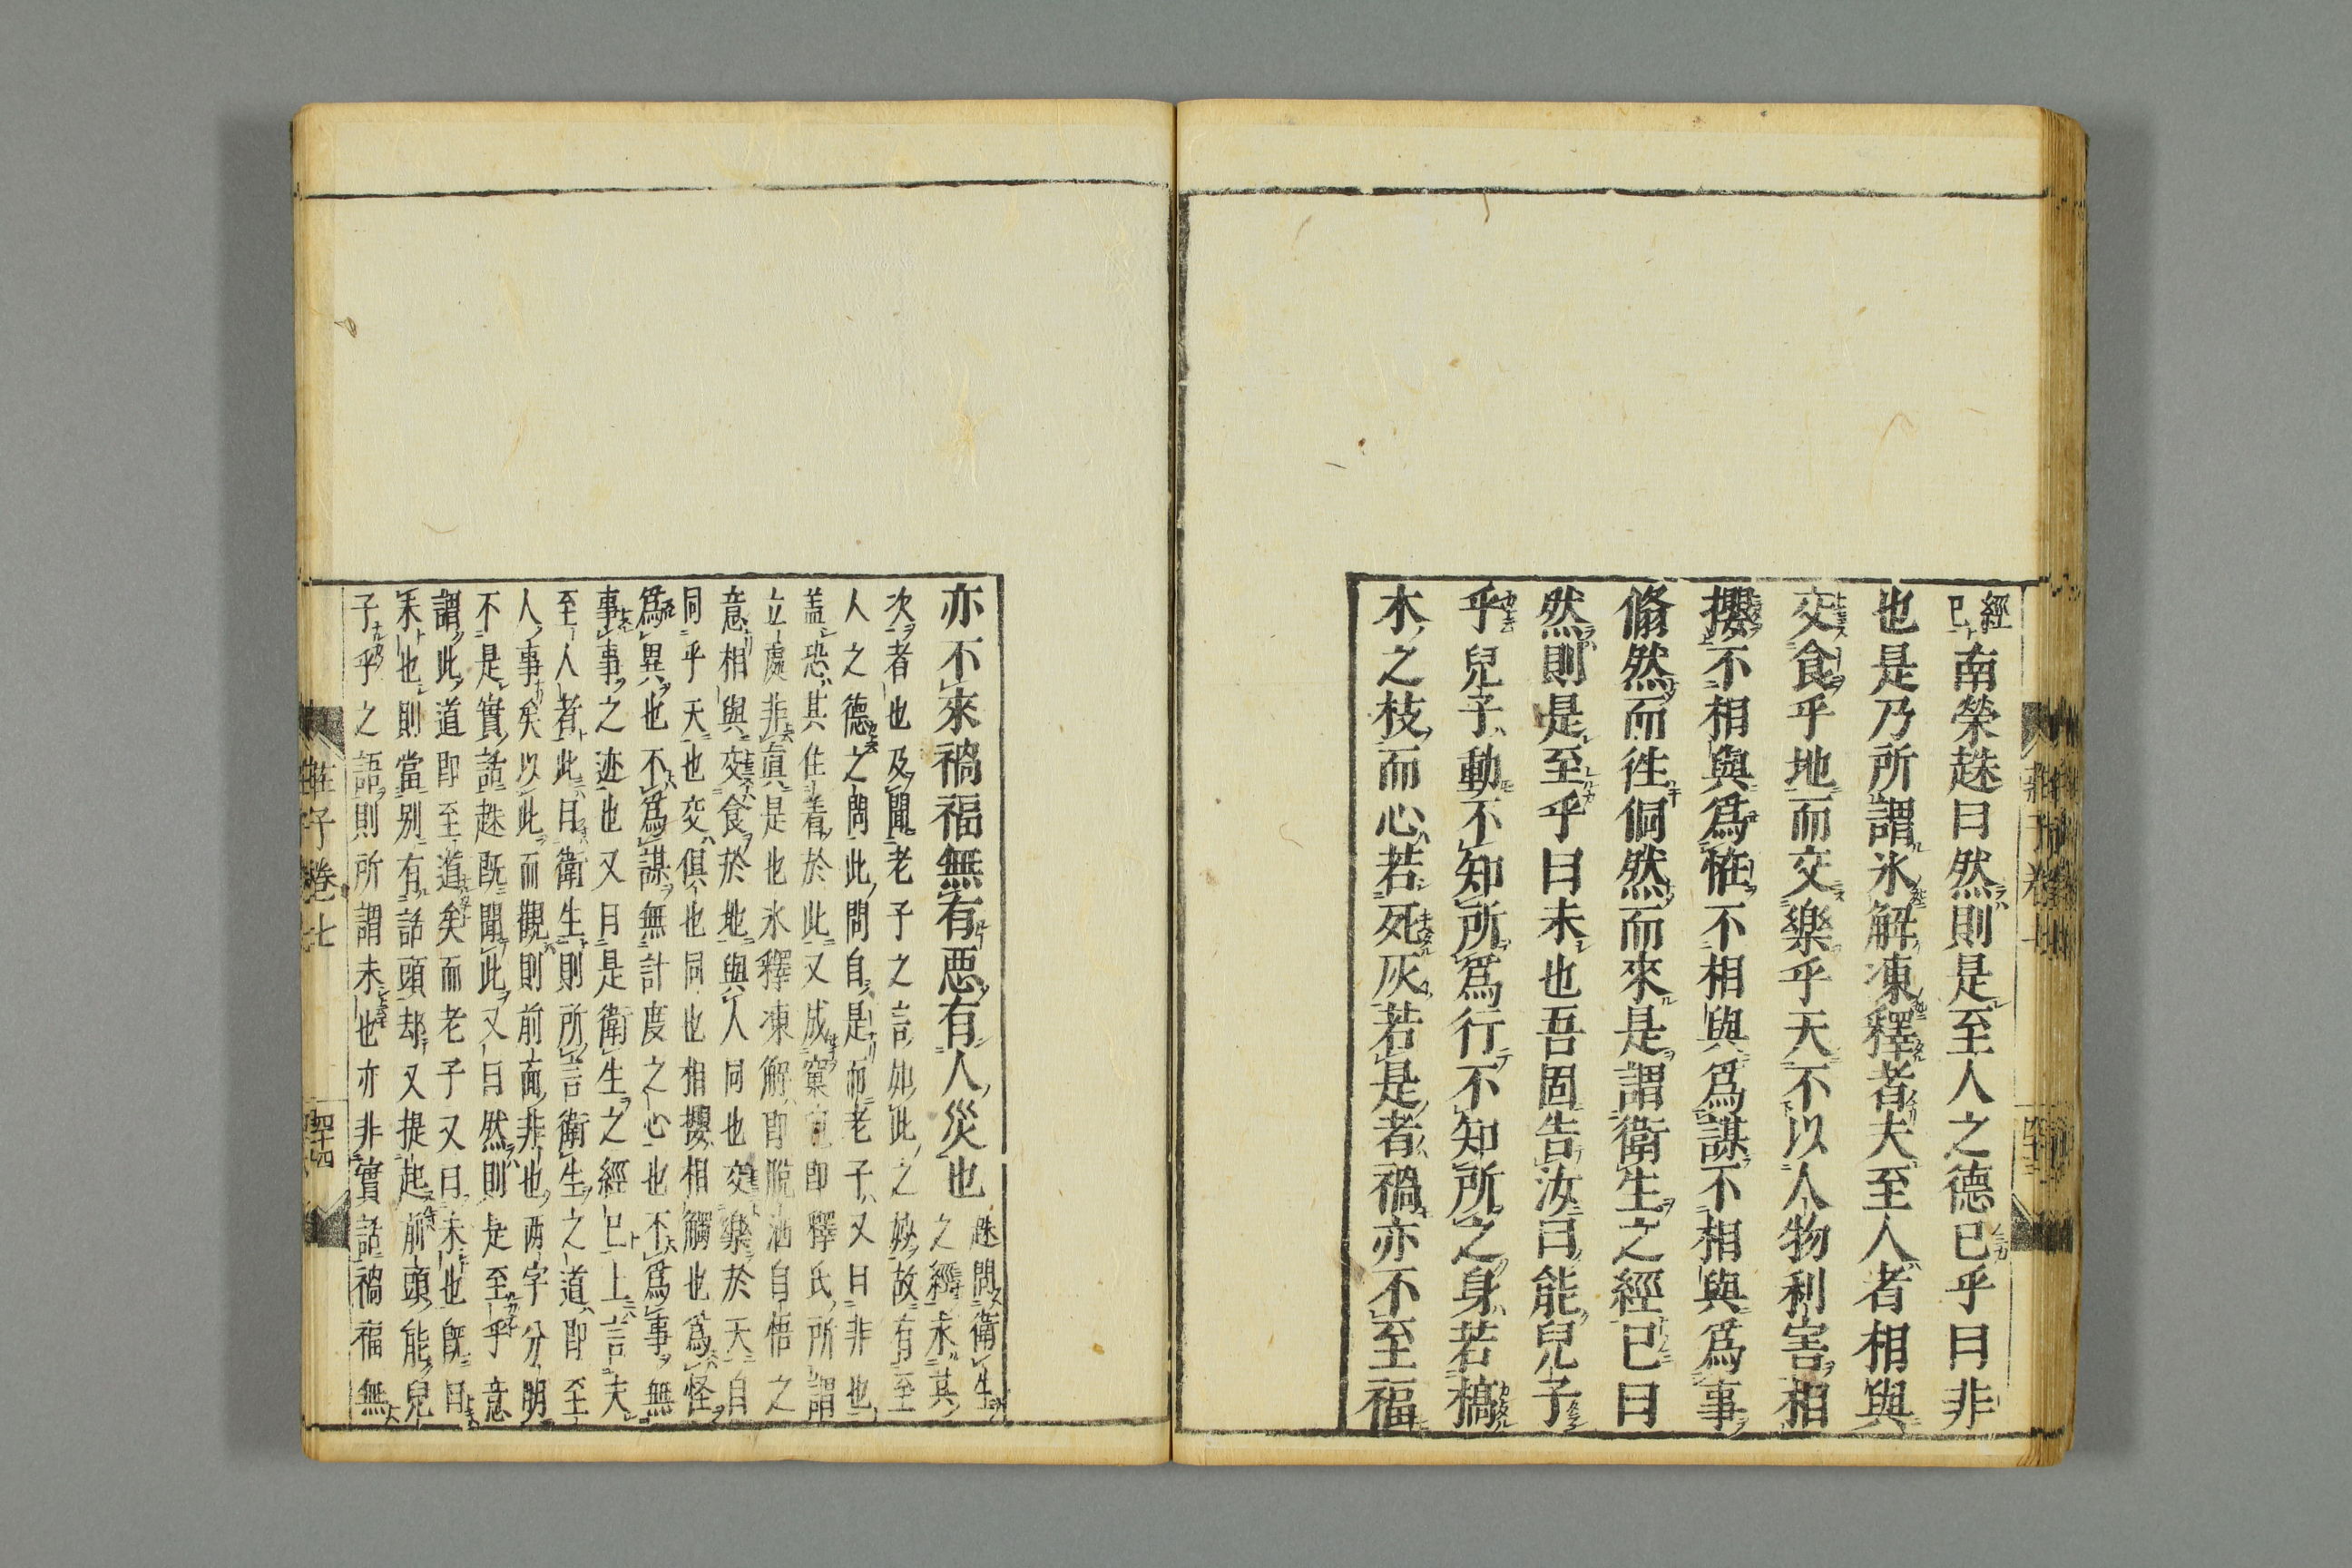 經
已
南榮趎曰然則是至人之德已乎曰非
也是乃所謂氷解凍釋者夫至人者相與
交食乎地而交樂乎天不以人物利害相
攖不相與爲恠不相與爲謀不相與爲事
翛然而徃侗然而來是謂衛生之經已曰
然則是至乎曰未也吾固告汝曰能兒子
乎兒子動不知所爲行不知所之身若槁
木之枝而心若死灰若是者禍亦不至福
亦不來禍福無有惡有人災也
趎問衛生
之經未其
次者也及聞老子之言如此之妙故有至
人之德之問此問自是而老子又曰非也
盖恐其住着於此又成窠臼即釋氏所謂
立處非眞是也氷釋凍解即脫洒自悟之
意相與交食於地與人同也交樂於天自
同乎天也交俱也同也相攖相觸也爲怪
爲異也不爲謀無計度之心也不爲事無
事事之迹也又曰是衛生之經已上言夫
至人者此曰衛生則所言衛生之道即至
人事矣以此而觀則前面非也两字分明
不是實話趎既聞此又曰然則是至乎意
謂此道即至道矣而老子又曰未也既曰
未也則當别有話頭却又提起前頭能兒
子乎之語則所謂未也亦非實話禍福無
莊子卷七
四十四